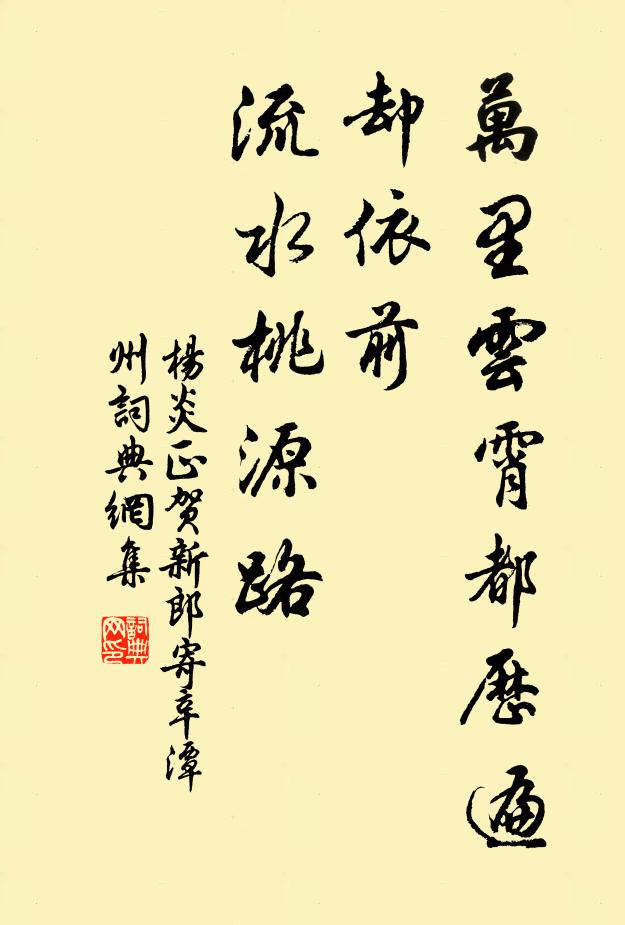 萬里雲霄都歷遍
却依前
流水桃源路
楊炎正賀新郎寄辛潭
州詞典網集
詞典
网印